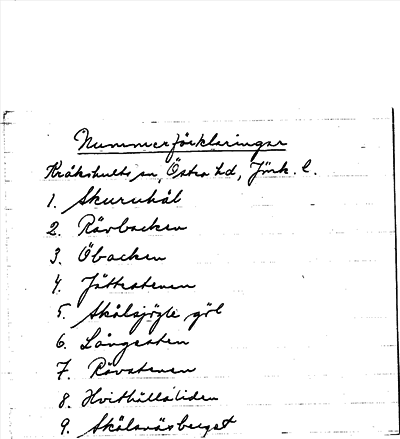 Nummerförklaringar
Kråkshults sn, Östra hd, Jönk. l.
1. Skuruhål
2. Rävbacken
3. Öbacken
4. Jättestenen
5. Skälsjögle göl
6. Långesten
7. Rävstenen
8. Hvithulläliden
9. Skälsnäsberget